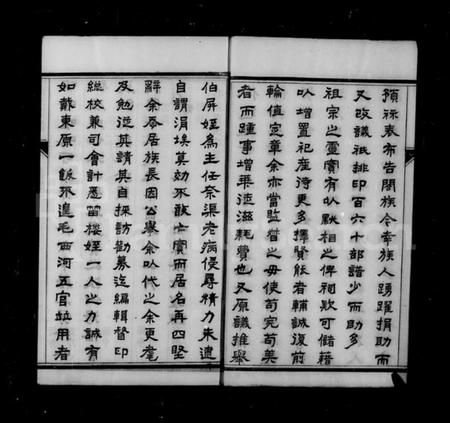 預祘表布告閤族今幸族人踴躍捐助而
又改議祇排印百六十部譜少而助多
祖宗之靈實有以默相之俾祠款可儲藉
以增置祀產待更多擇賢能者輔誠復前
輪值定章余亦當監督之毋使苟完苟美
者而踵事增乗徒滋耗費也又原議推舉
伯屏姪為主任奈渠老病侵尋精力未逮
自謂涓埃莫効不敢亡實而居名再四堅
辭余忝居族長因公舉余以代之余更耄
及勉從其請其自採訪勸募迄編輯督印
總校兼司會計悉笛樓姪一人之力誠有
如戴東原一飯不遑毛西河五官竝用者